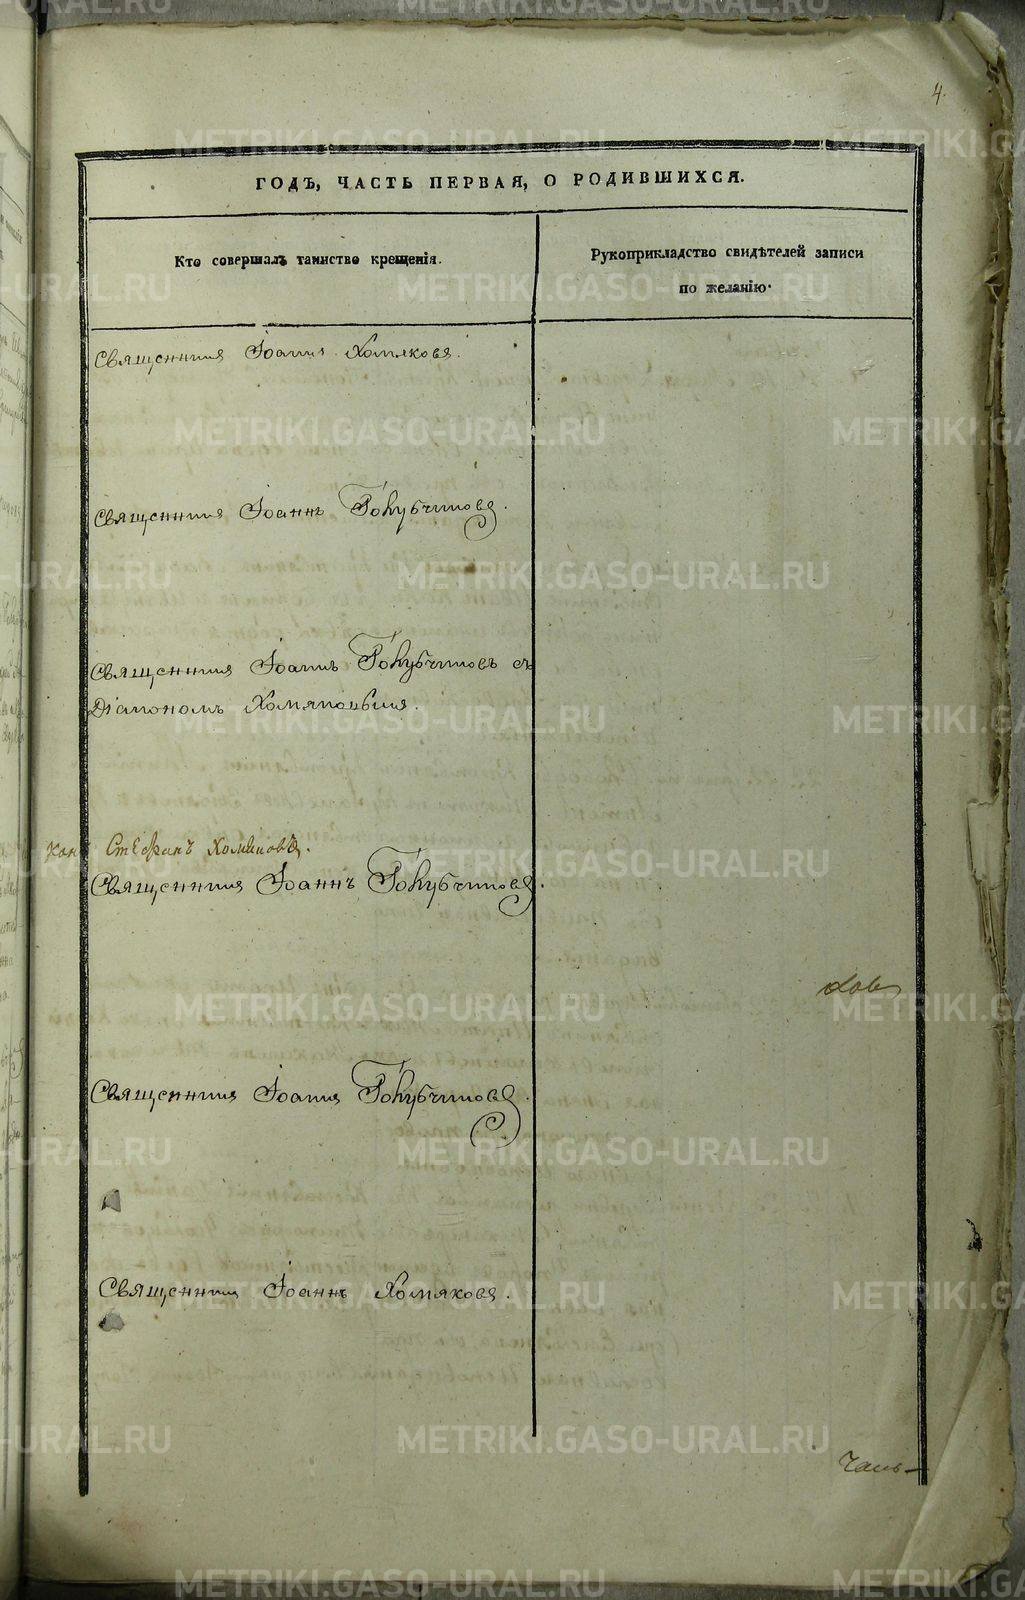 4.
ГОДЪ, ЧАСТЬ ПЕРВАЯ, О РОДИВШИХСЯ.
Кто совершалъ таинство крещенія.
Рукоприкладство свидѣтелей записи
по желанію.
Священникъ Іоаннъ Хомяковъ.
Священникъ Іоаннъ Голубчиковъ.
Священникъ Іоаннъ Голубчиковъ съ
Діакономъ Хомяковымъ.
Стефанъ Хомяковъ.
Священникъ Іоаннъ Голубчиковъ.
Священникъ Іоаннъ Голубчиковъ.
Священникъ Іоаннъ Хомяковъ.
METRIKI.GASO-URAL.RU